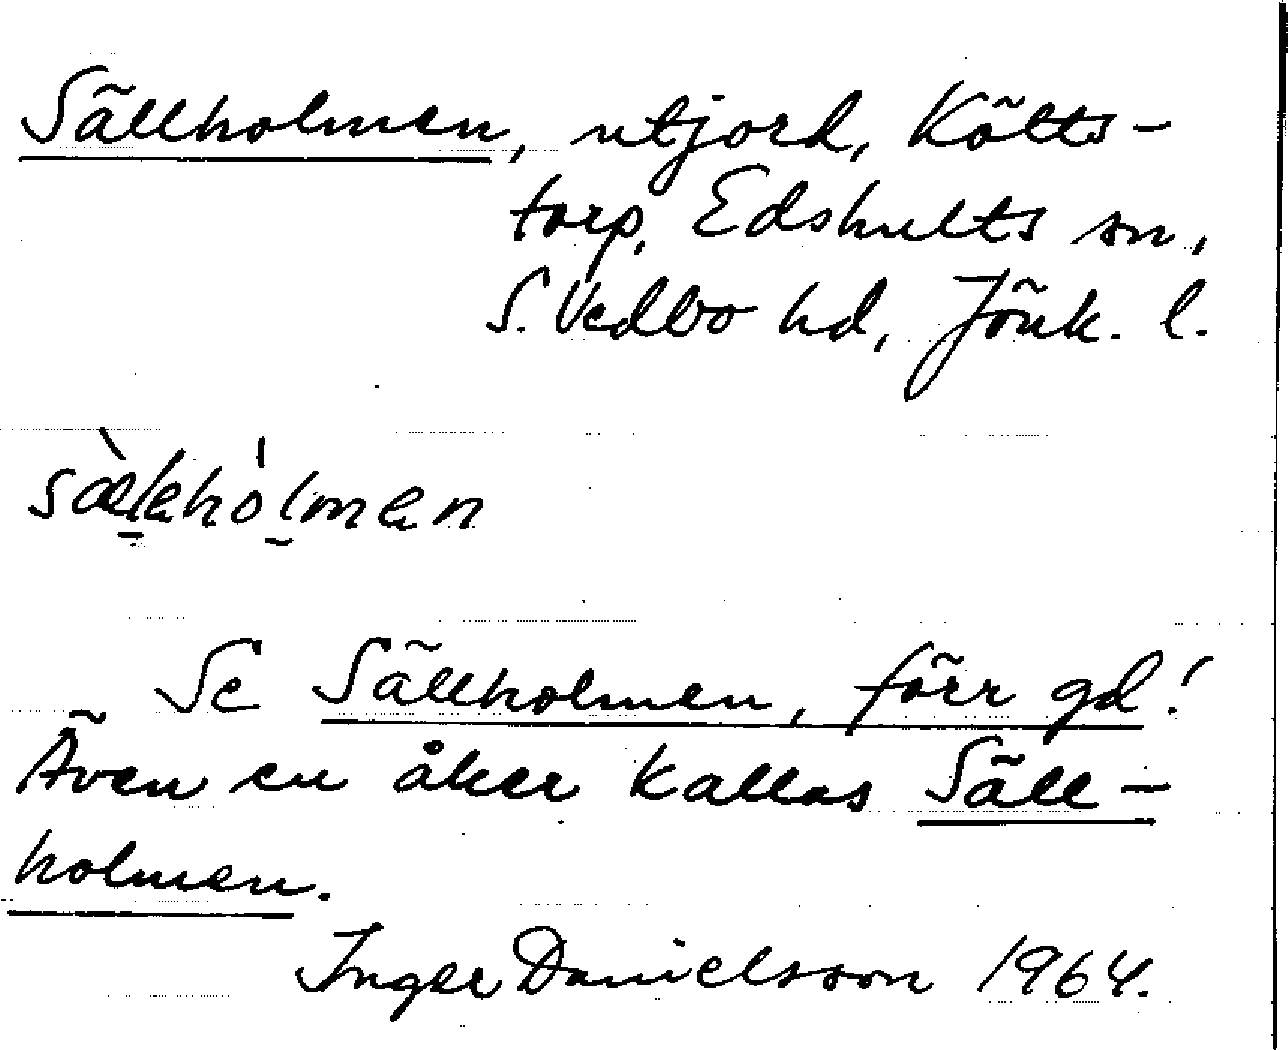 Sällholmen, utjord, Kötts-
torp, Edshults sn,
S. Vedbo hd, Jönk. l.
sæ̀leho̍lmen
Se Sällholmen, förr gd!
Även en åker kallas Säll-
holmen.
Inger Danielsson 1964.